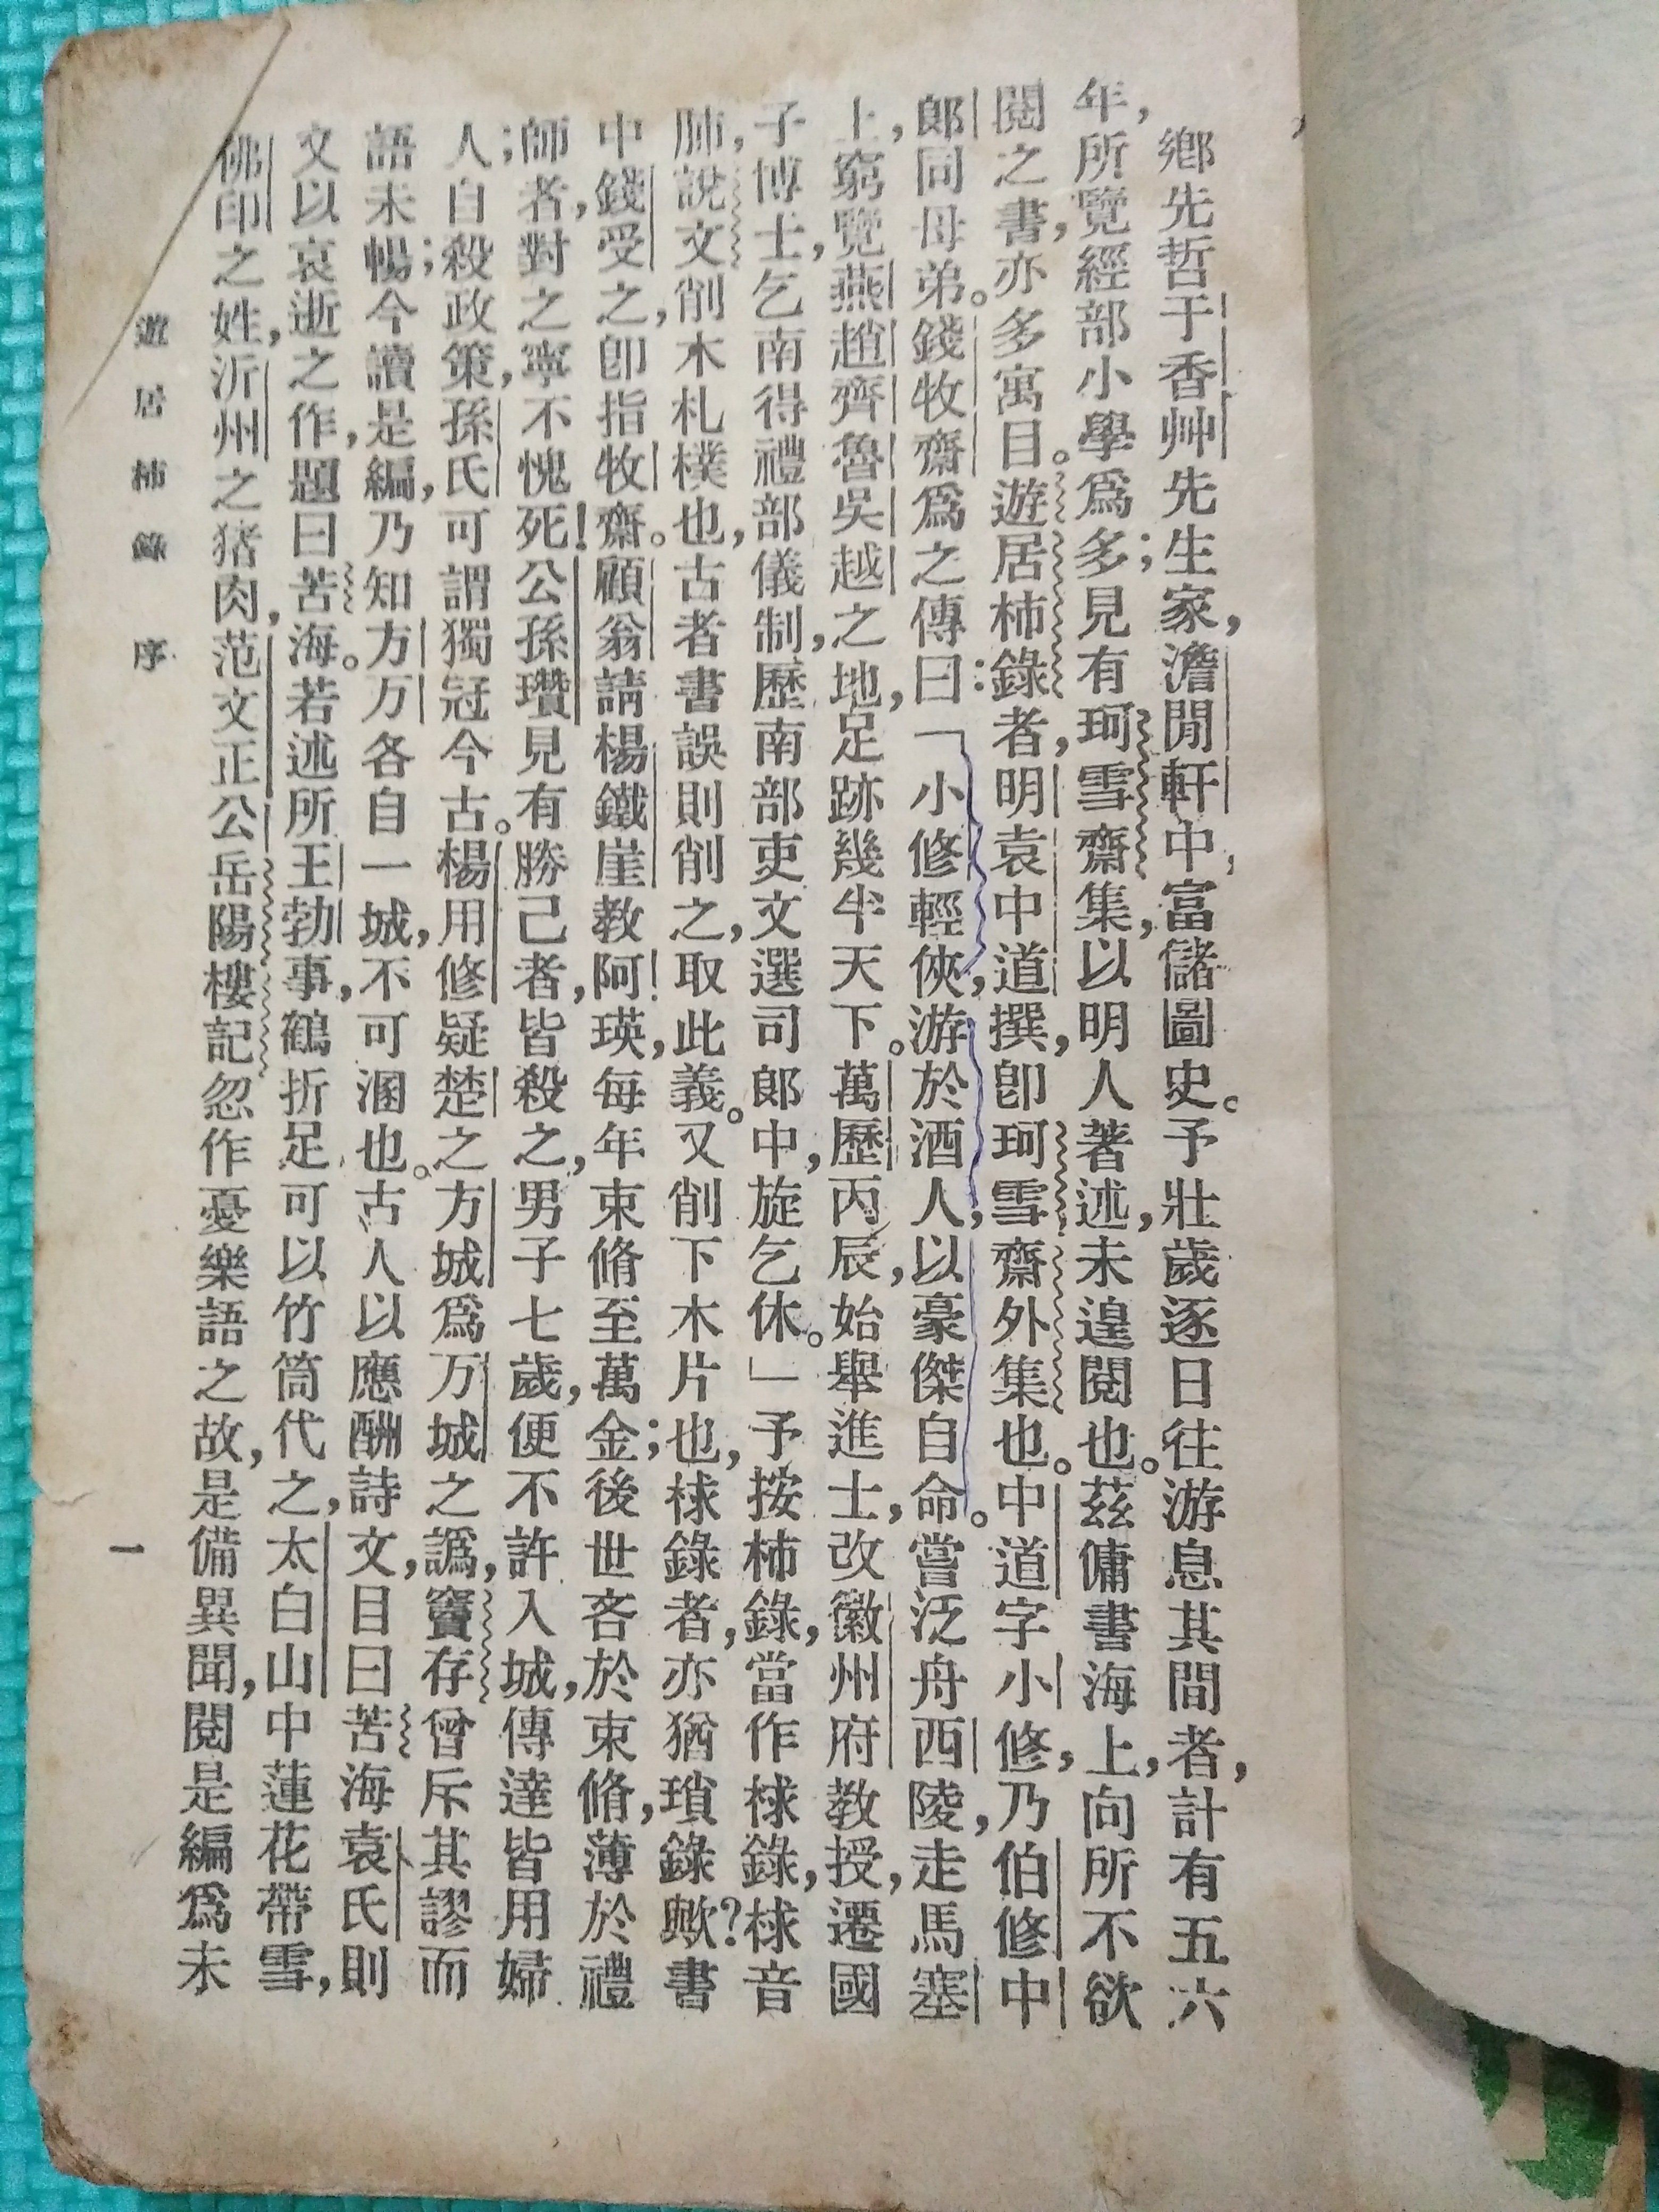 鄉先哲于香艸先生家，澹閒軒中，富儲圖史。予壯歲逐日往游息其間者，計有五六
年，所覽經部小學爲多；見有珂雪齋集，以明人著述，未遑閱也。茲傭書海上，向所不欲
閱之書，亦多寓目。遊居柿錄者，明袁中道撰，卽珂雪齋外集也。中道字小修，乃伯修中
郎同母弟。錢牧齋爲之傳曰：「小修輕俠，游於酒人，以豪傑自命。嘗泛舟西陵，走馬塞
上，窮覽燕趙齊魯吳越之地，足跡幾半天下。萬歷丙辰，始舉進士，改徽州府教授，遷國
子博士，乞南得禮部儀制，歷南部吏文選司郎中，旋乞休。」予按柿錄，當作梂錄，梂音
肺，說文削木札樸也，古者書誤則削之，取此義。又削下木片也，梂錄者，亦猶瑣錄歟？書
中錢受之，卽指牧齋。顧翁請楊鐵崖教阿！瑛，每年束脩至萬金；後世吝於束脩，薄於禮
師者，對之寧不愧死！公孫瓚見有勝己者，皆殺之，男子七歲，便不許入城，傳達皆用婦
人；自殺政策，孫氏可謂獨冠今古。楊用修疑楚之方城爲万城之譌，竇存曾斥其謬而
語未暢；今讀是編，乃知方万各自一城，不可溷也。古人以應酬詩文，目曰苦海袁氏則
文以哀逝之作，題曰苦海。若述所王勃事，鶴折足可以竹筒代之，太白山中蓮花帶雪，
佛印之姓，沂州之猪肉，范文正公岳陽樓記忽作憂樂語之故，是備異聞，閱是編爲未
遊居柿錄 序 一